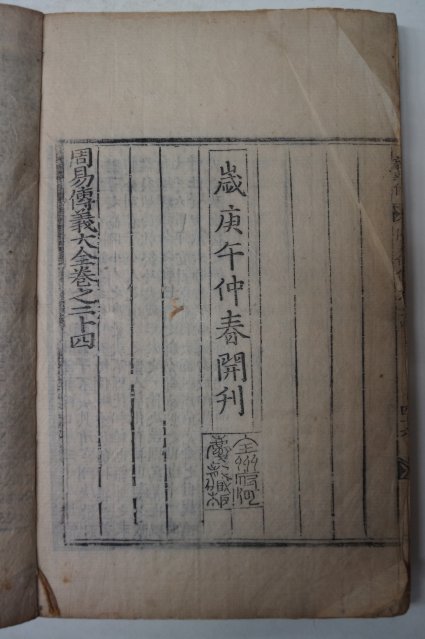 歲庚午仲春開刊
全州府河
慶龍藏板
周易傳義大全卷之二十四